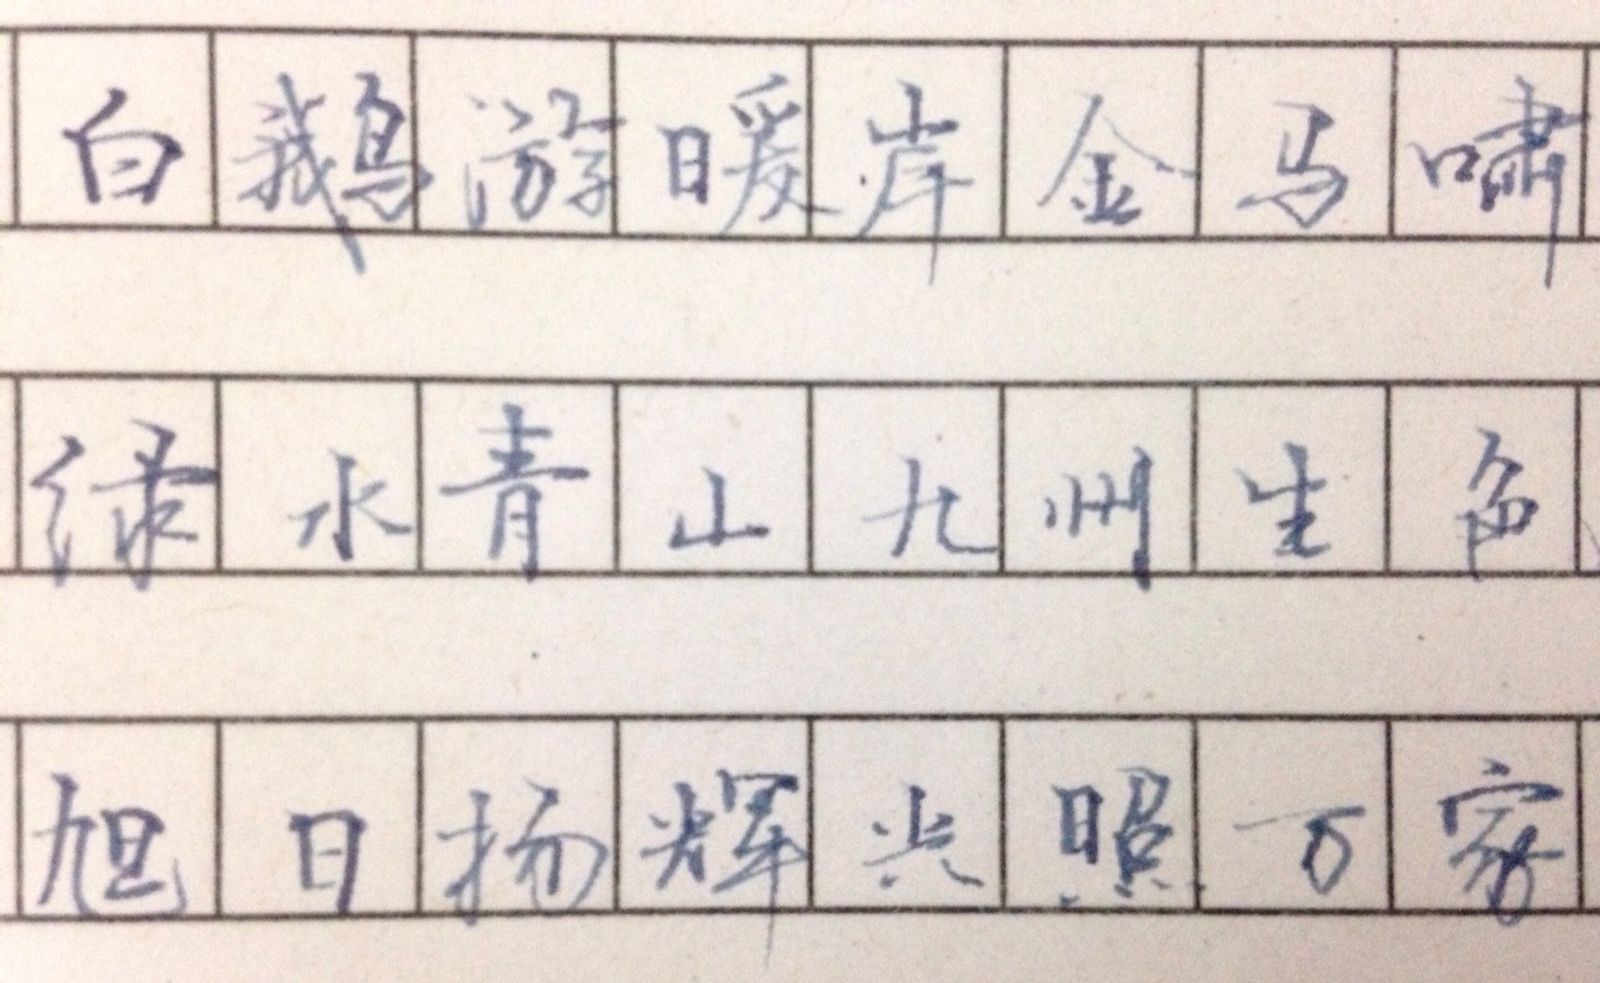 白鹅游暖岸金马啸
绿水青山九州生色
旭日扬辉光照万家